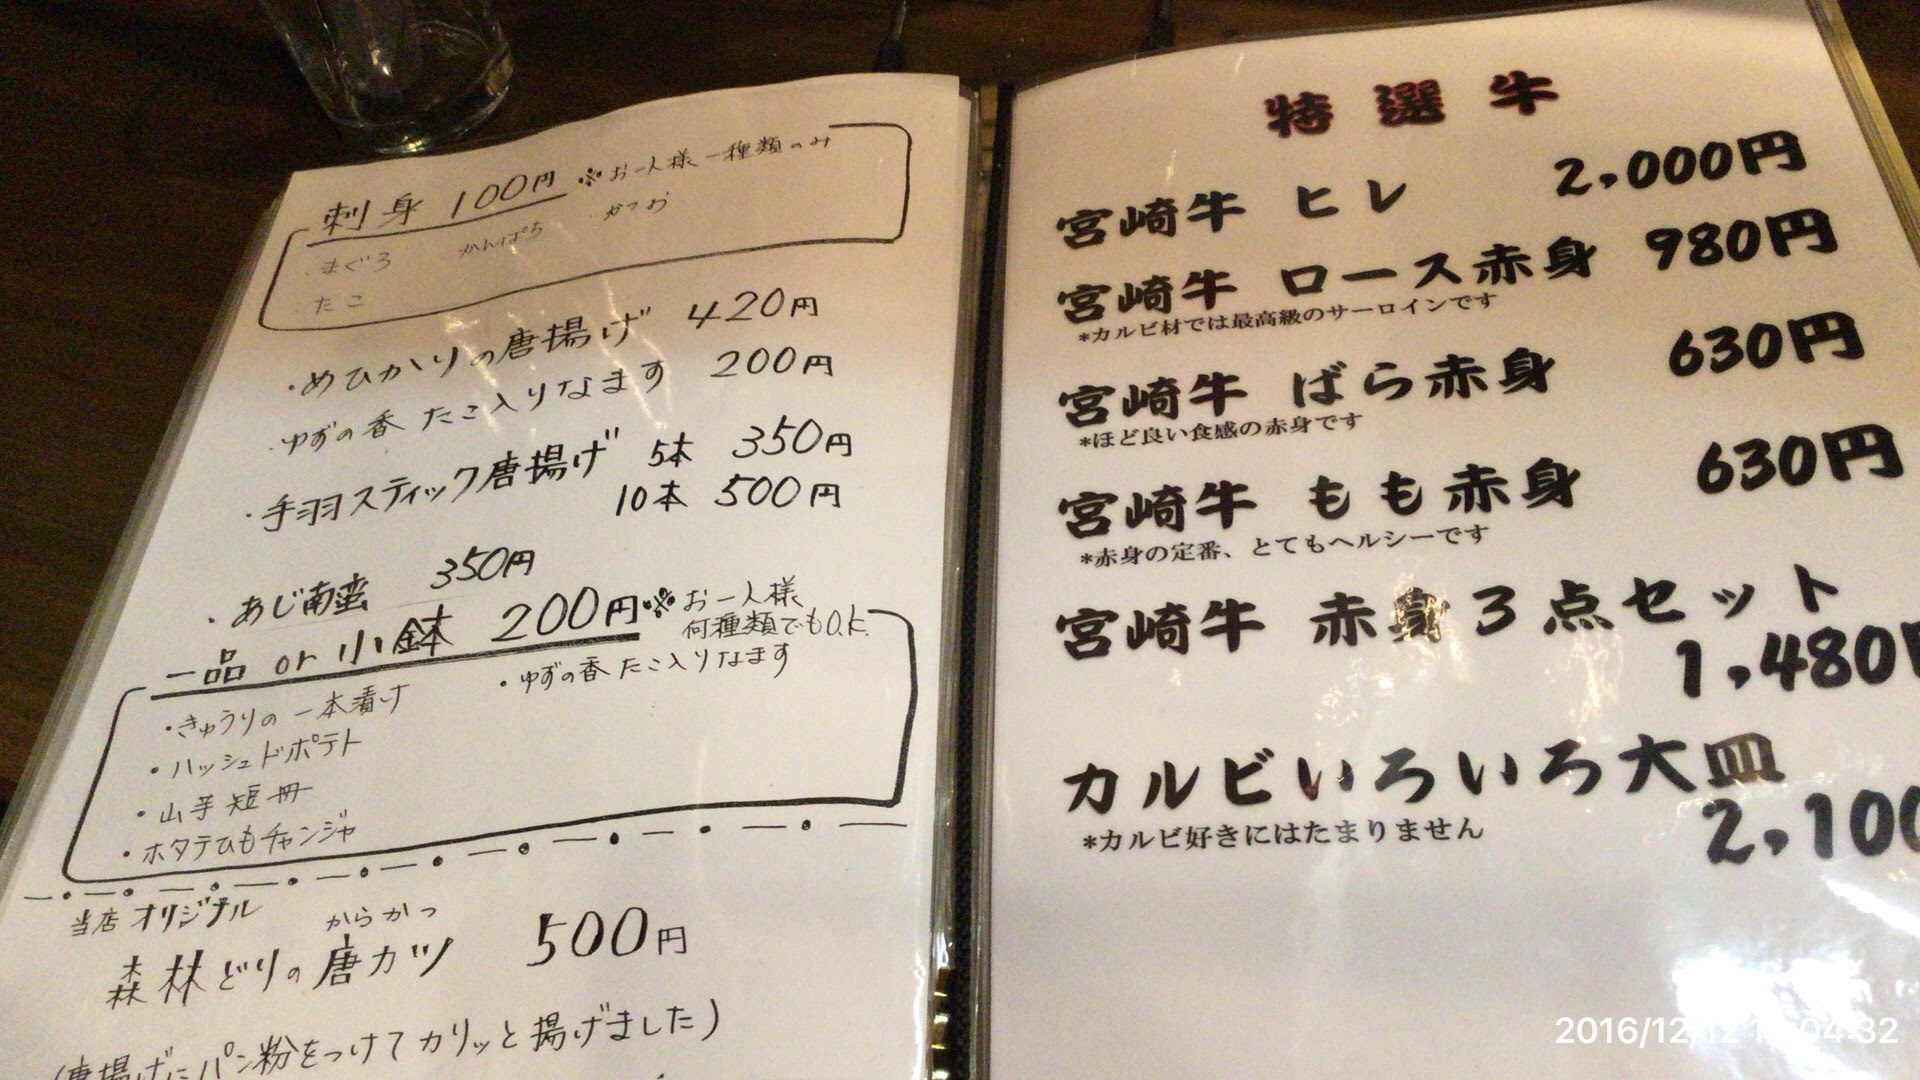 刺身 100円 ※お一人様一種類のみ
・まぐろ かんぱち ・かつお
・たこ
・めひかりの唐揚げ 420円
・ゆずの香 たこ入りなます 200円
・手羽スティック唐揚げ 5本 350円
10本 500円
・あじ南蛮 350円
一品 or 小鉢 200円 ※お一人様
何種類でもO.K.
・きゅうりの一本漬け ・ゆずの香 たこ入りなます
・ハッシュドポテト
・山芋短冊
・ホタテひもチャンジャ
当店オリジナル
からかつ
森林どりの唐カツ 500円
(唐揚げにパン粉をつけてカリッと揚げました)
特選牛
宮崎牛 ヒレ 2,000円
宮崎牛 ロース赤身 980円
*カルビ材では最高級のサーロインです
宮崎牛 ばら赤身 630円
*ほど良い食感の赤身です
宮崎牛 もも赤身 630円
*赤身の定番、とてもヘルシーです
宮崎牛 赤身3点セット
1,480円
カルビいろいろ大皿
2,100
*カルビ好きにはたまりません
2016/12/12